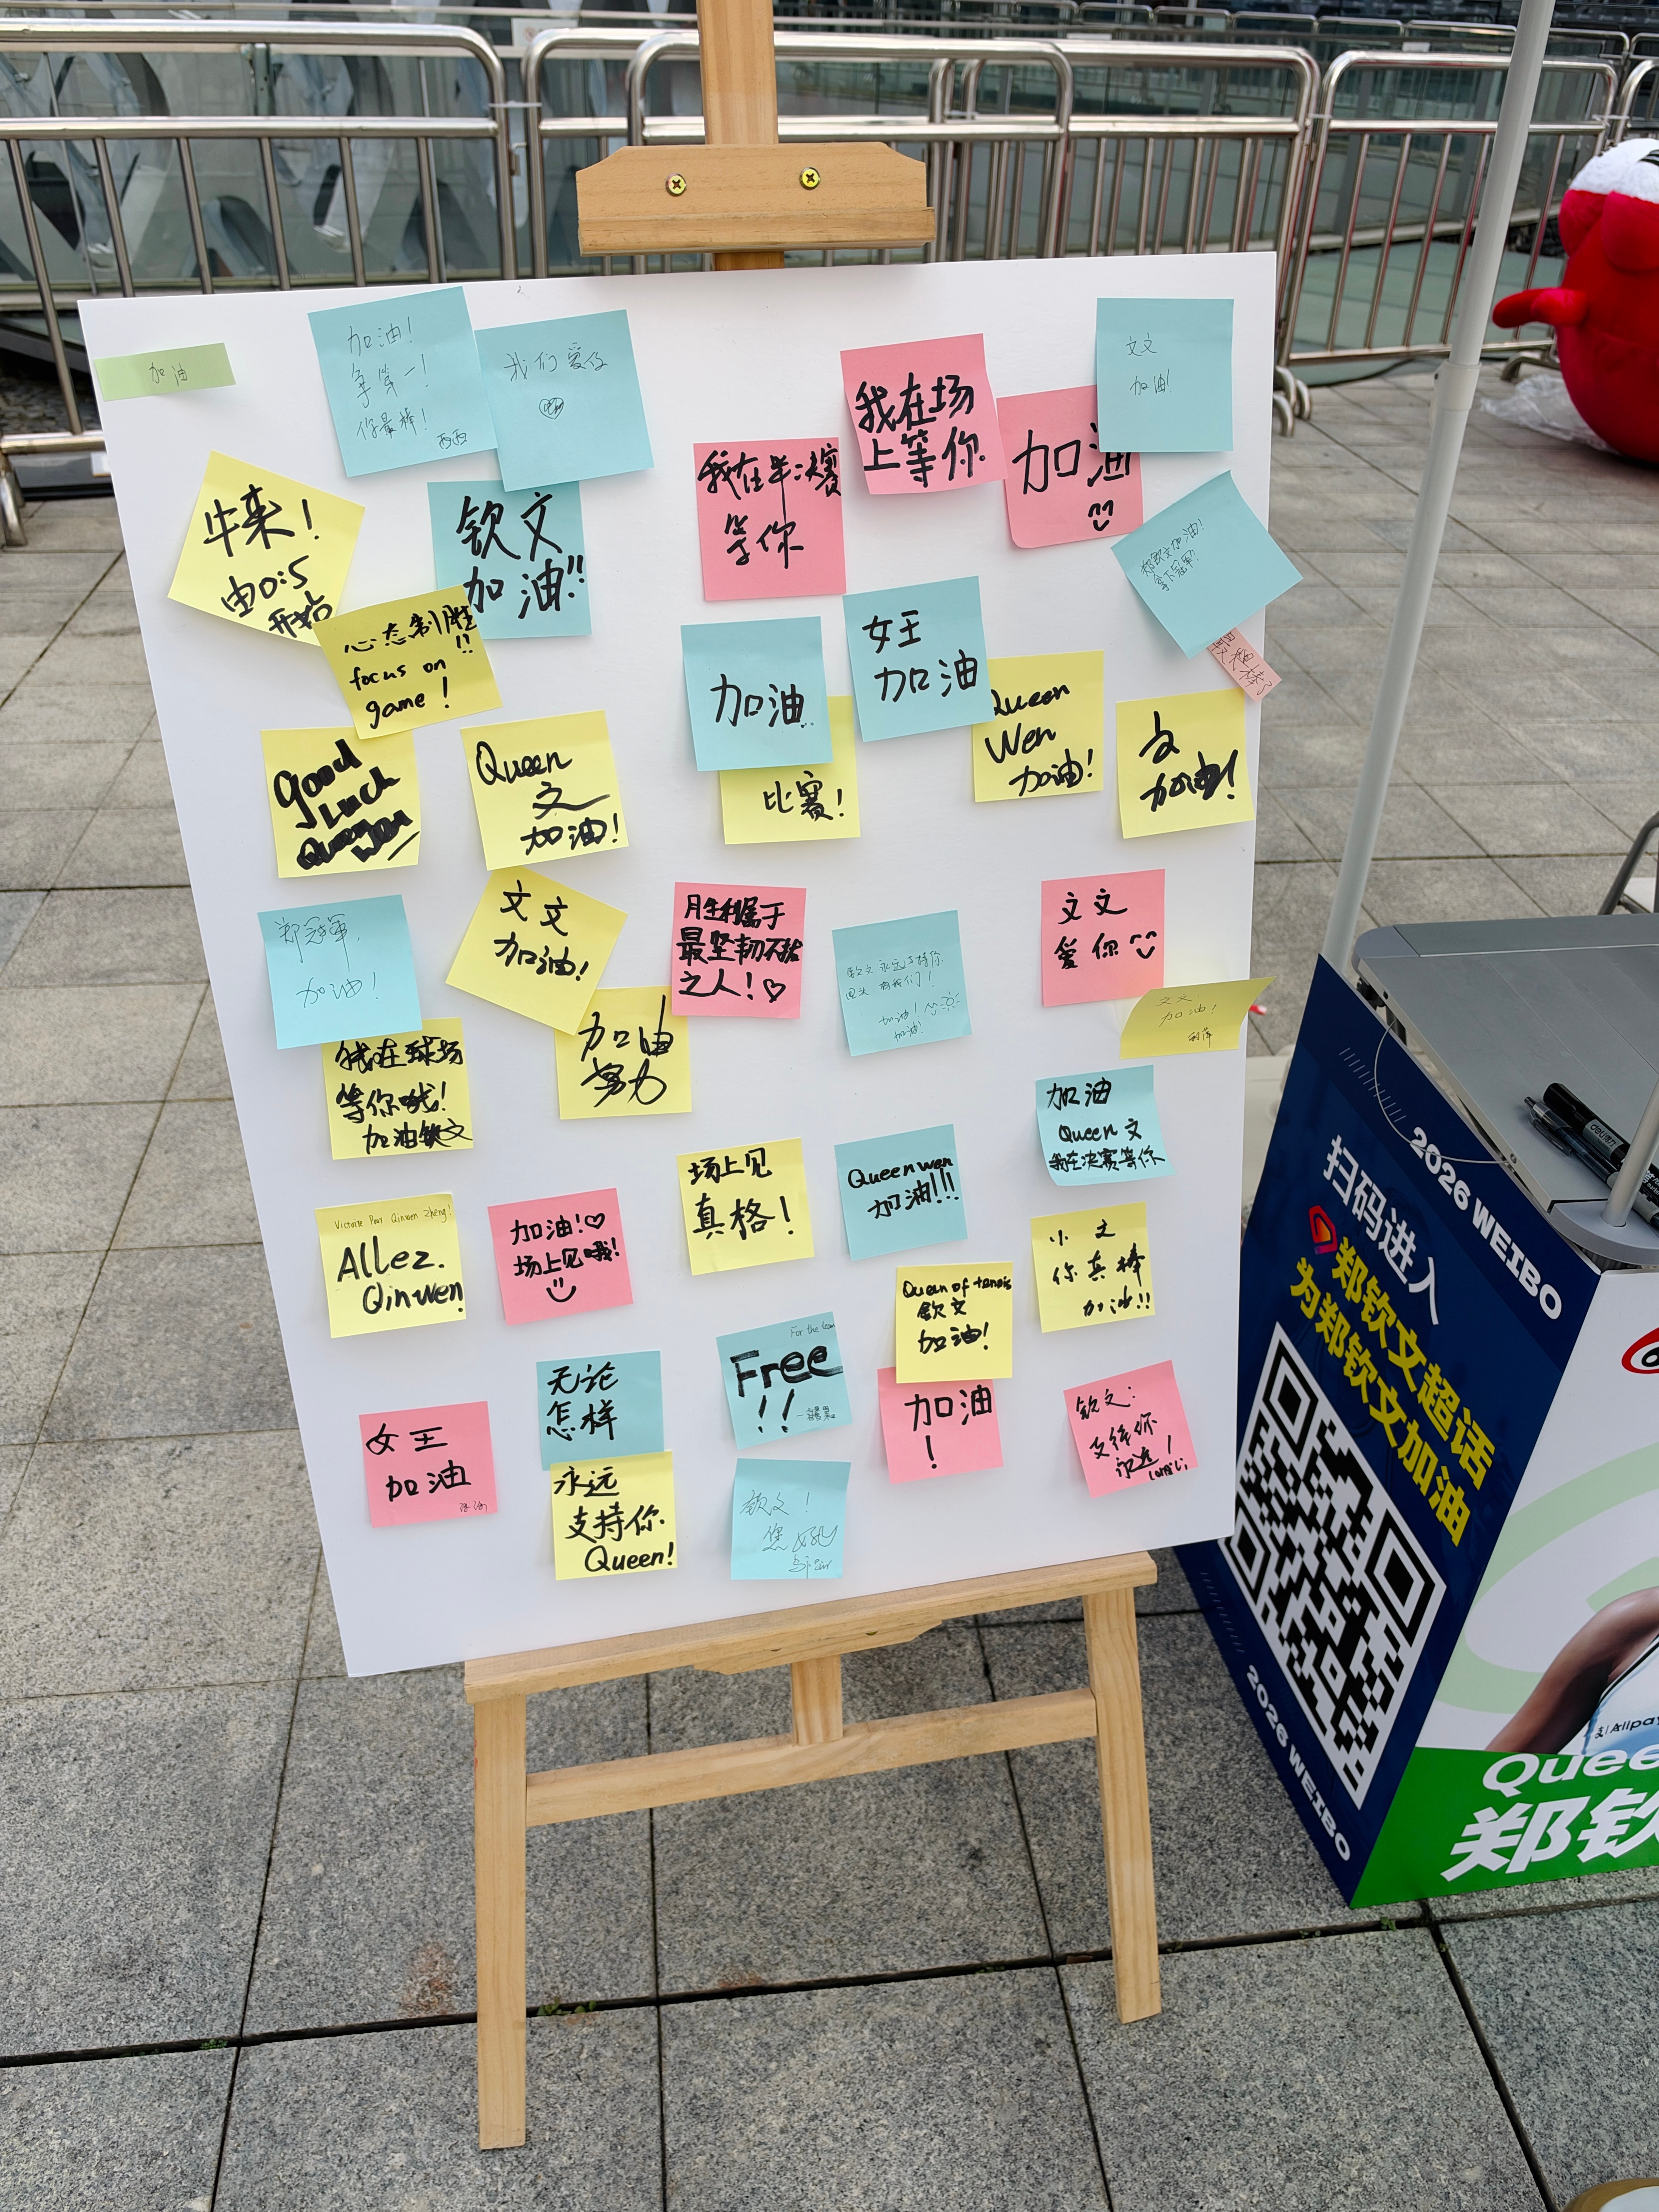 加油
加油!
拿第一!
你最棒!
西西
我们爱你
我在场
上等你
文文
加油!
加油
我在半决赛
等你
牛来!
由0:5
开始
钦文
加油!!
郑钦文加油!
拿下冠军!
心态制胜!!
focus on
game!
女王
加油
加油
比赛!
Queen
Wen
加油!
文
加油!
Good
Luck
Queen
Wen
Queen
文
加油!
郑冠軍,
加油!
文文
加油!
胜利属于
最坚韧不拔
之人!♡
钦文永远支持你
有我们!
加油!
加油!
文文
爱你
文文!
加油!
加油
努力
我在球场
等你哦!
加油钦文
加油
Queen文
我在决赛等你
场上见
真格!
Queen wen
加油!!!
Victoire Pour Qinwen Zheng!
Allez.
Qinwen!
加油!♡
场上见哦!
小文
你真棒
加油!!
Queen of tennis
钦文
加油!
For the team
Free
!!
无论
怎样
加油
!
钦文:
支持你
永远!
女王
加油
永远
支持你
Queen!
钦文!
您好
deli
2026 WEIBO
扫码进入
郑钦文超话
为郑钦文加油
2026 WEIBO
支|Alipay
Quee
郑钦